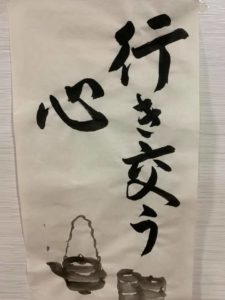 行き交う
心